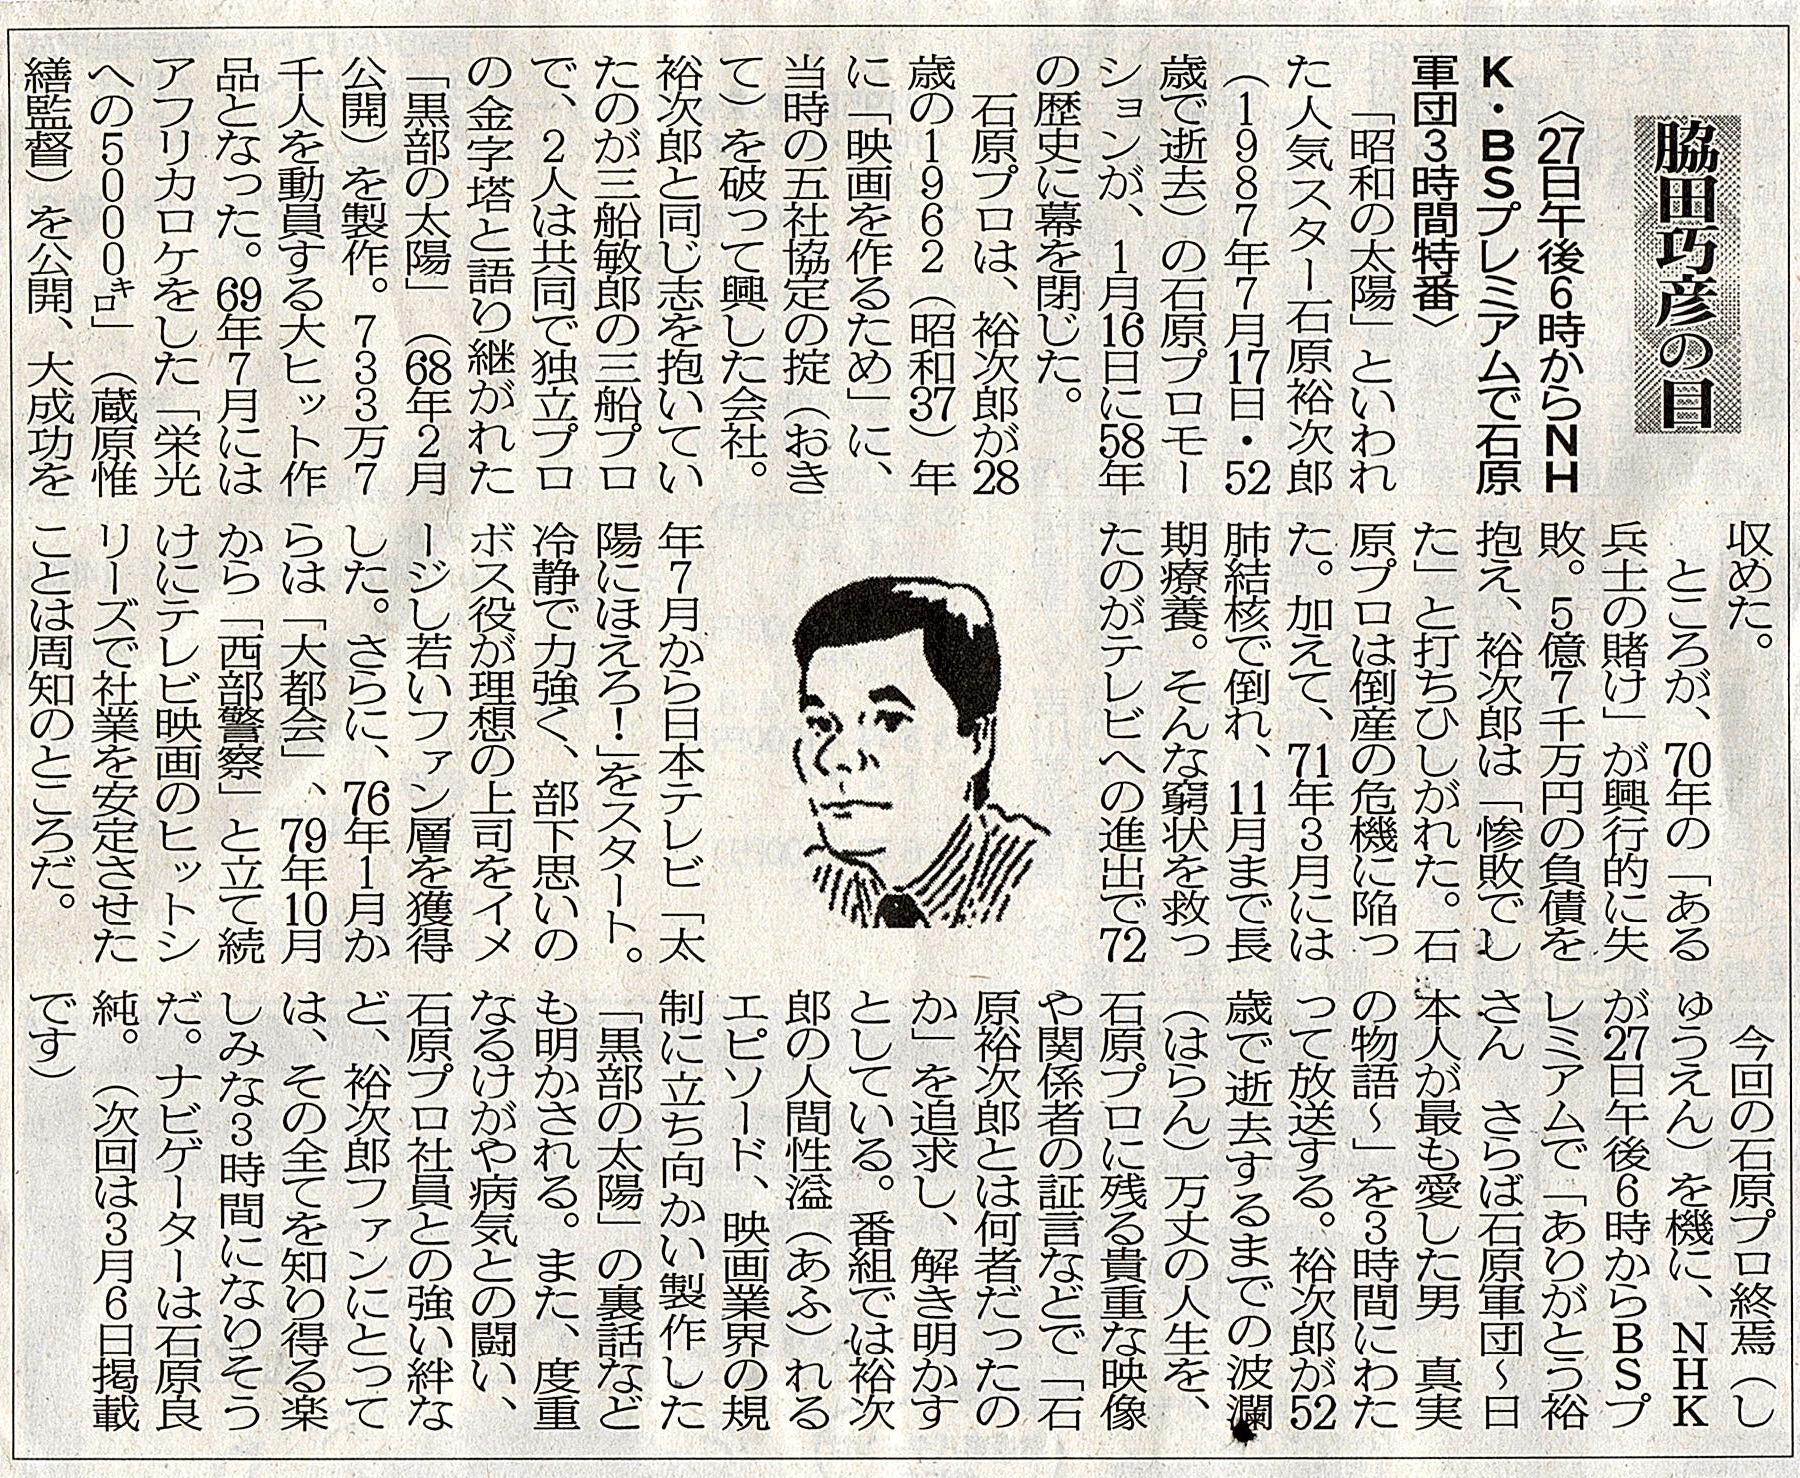 脇田巧彦の目
〈27日午後6時からNH
K・BSプレミアムで石原
軍団3時間特番〉
「昭和の太陽」といわれ
た人気スター石原裕次郎
(1987年7月17日・52
歳で逝去)の石原プロモー
ションが、1月16日に58年
の歴史に幕を閉じた。
石原プロは、裕次郎が28
歳の1962(昭和37)年
に「映画を作るため」に、
当時の五社協定の掟(おき
て)を破って興した会社。
裕次郎と同じ志を抱いてい
たのが三船敏郎の三船プロ
で、2人は共同で独立プロ
の金字塔と語り継がれた
「黒部の太陽」(68年2月
公開)を製作。733万7
千人を動員する大ヒット作
品となった。69年7月には
アフリカロケをした「栄光
への5000㌔」(蔵原惟
繕監督)を公開、大成功を
収めた。
ところが、70年の「ある
兵士の賭け」が興行的に失
敗。5億7千万円の負債を
抱え、裕次郎は「惨敗でし
た」と打ちひしがれた。石
原プロは倒産の危機に陥っ
た。加えて、71年3月には
肺結核で倒れ、11月まで長
期療養。そんな窮状を救っ
たのがテレビへの進出で72
年7月から日本テレビ「太
陽にほえろ!」をスタート。
冷静で力強く、部下思いの
ボス役が理想の上司をイメ
ージし若いファン層を獲得
した。さらに、76年1月か
らは「大都会」、79年10月
から「西部警察」と立て続
けにテレビ映画のヒットシ
リーズで社業を安定させた
ことは周知のところだ。
今回の石原プロ終焉(し
ゅうえん)を機に、NHK
が27日午後6時からBSプ
レミアムで「ありがとう裕
さん さらば石原軍団~日
本人が最も愛した男 真実
の物語~」を3時間にわた
って放送する。裕次郎が52
歳で逝去するまでの波瀾
(はらん)万丈の人生を、
石原プロに残る貴重な映像
や関係者の証言などで「石
原裕次郎とは何者だったの
か」を追求し、解き明かす
としている。番組では裕次
郎の人間性溢(あふ)れる
エピソード、映画業界の規
制に立ち向かい製作した
「黒部の太陽」の裏話など
も明かされる。また、度重
なるけがや病気との闘い、
石原プロ社員との強い絆な
ど、裕次郎ファンにとって
は、その全てを知り得る楽
しみな3時間になりそう
だ。ナビゲーターは石原良
純。(次回は3月6日掲載
です)